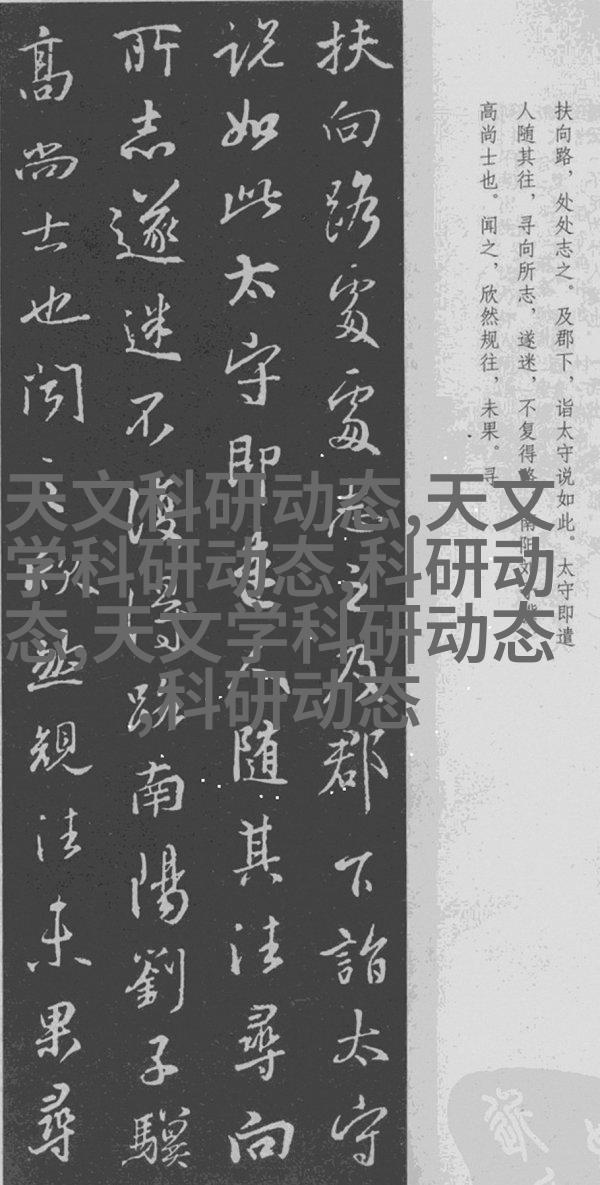 扶向路，处处志之。及郡下，诣太守说如此。太守即遣
人随其往，寻向所志，遂迷，不复得
高尚士也。闻之，欣然规往，未果。寻
扶向路處處志之及郡下詣太守
说如此太守即遣人随其往尋向
所志遂迷不復得路南陽劉子驥
高尚士也闻之欣然規往未果尋
天文科研动态,天文
学科研动态,科研动
态,天文学科研动态
,科研动态